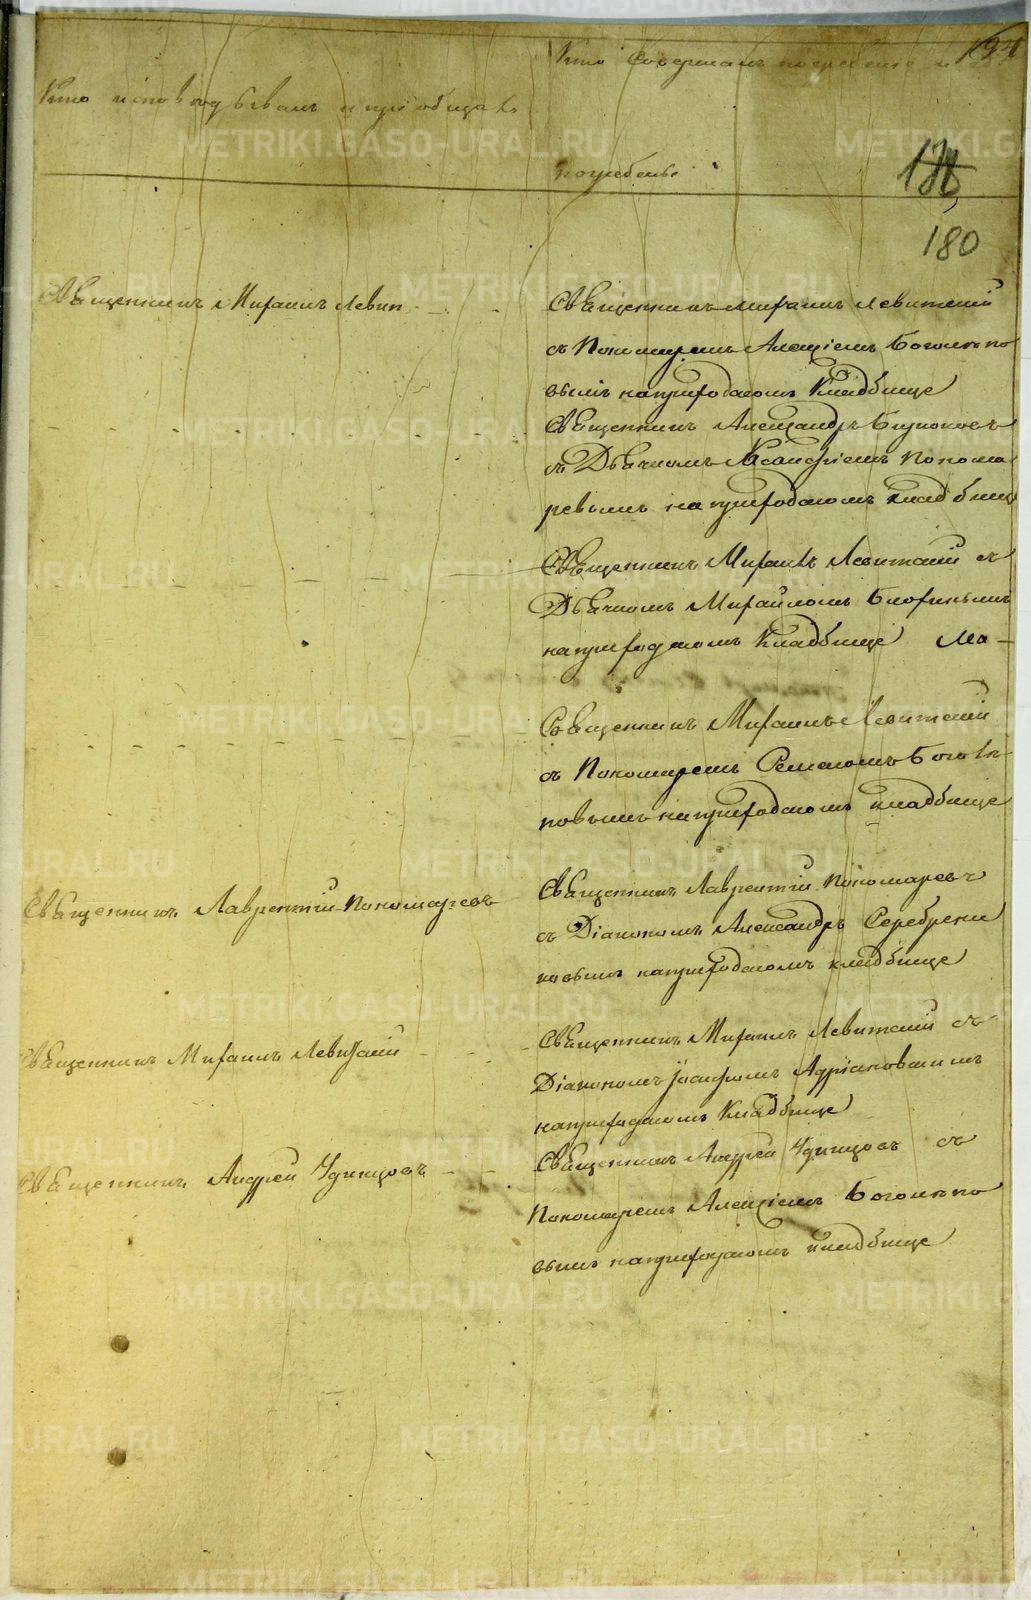 194
Кто исповѣдывалъ и приобщалъ
Кто совершалъ погребение и
погребены
180
Священникъ Михаилъ Левит
Священникъ Михаилъ Левитскій
съ Пономаремъ Алексіемъ Боголепо
вымъ на приходскомъ Кладбище
Священникъ Александръ
съ Дьячкомъ Пономa
ревымъ на приходскомъ кладбище
Священникъ Михаилъ Левитский съ
Дьячкомъ Михайломъ
на приходскомъ Кладбище
Священникъ Михаилъ Левитский
съ Пономаремъ Боголѣ
повымъ на приходскомъ кладбище
Священникъ Лаврентий Пономаревъ
Священникъ Лаврентій Пономаревъ
съ Діакономъ Александръ Серебрени
ковымъ на приходскомъ кладбище
Священникъ Михаилъ Левитский
Священникъ Михаилъ Левитский съ
Діакономъ Іосифомъ Адріановскимъ
на приходскомъ Кладбище
Священникъ Андрей Удинцовъ
Священникъ Андрей Удинцовъ съ
Пономаремъ Алексіемъ Боголепо
вымъ на приходскомъ кладбище
METRIKI.GASO-URAL.RU